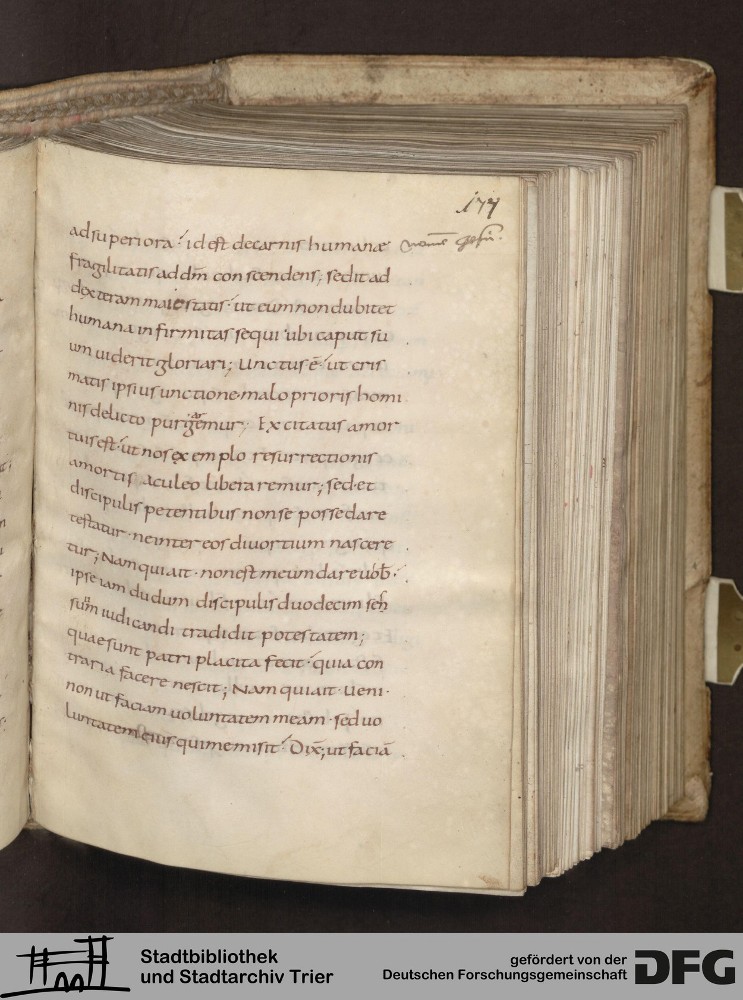 177
ad superiora; id est de carnis humanae
fragilitatis ad dm̄ conscendens; sedit ad
dexteram maiestatis; ut eum non dubitet
humana infirmitas sequi ubi caput su
um uiderit gloriari; Unctus ē; ut cris
matis ipsius unctione malo prioris homi
nis delicto purgemur; Excitatus amor
tuis est; ut nos exemplo resurrectionis
a mortis aculeo liberaremur; sed et
discipulis petentibus non se posse dare
testatur · ne inter eos diuortium nascere
tur; Nam qui ait · non est meum dare uob̄ ·
ipse iam dudum discipulis duodecim
iudicandi tradidit potestatem;
quae sunt patri placita fecit; quia con
traria facere nescit; Nam qui ait · Ueni ·
non ut faciam uoluntatem meam · sed uo
luntatem eius qui me misit; Dix̄; ut faciā
Stadtbibliothek
und Stadtarchiv Trier
gefördert von der
Deutschen Forschungsgemeinschaft
DFG